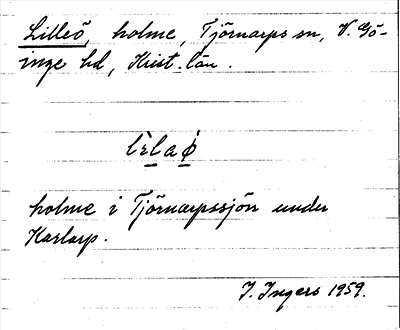 Lilleö, holme, Tjörnarps sn, V. Gö-
inge hd, Krist. län.
lìlaø̀
holme i Tjörnarpssjön under
Karlarp.
I. Ingers 1959.